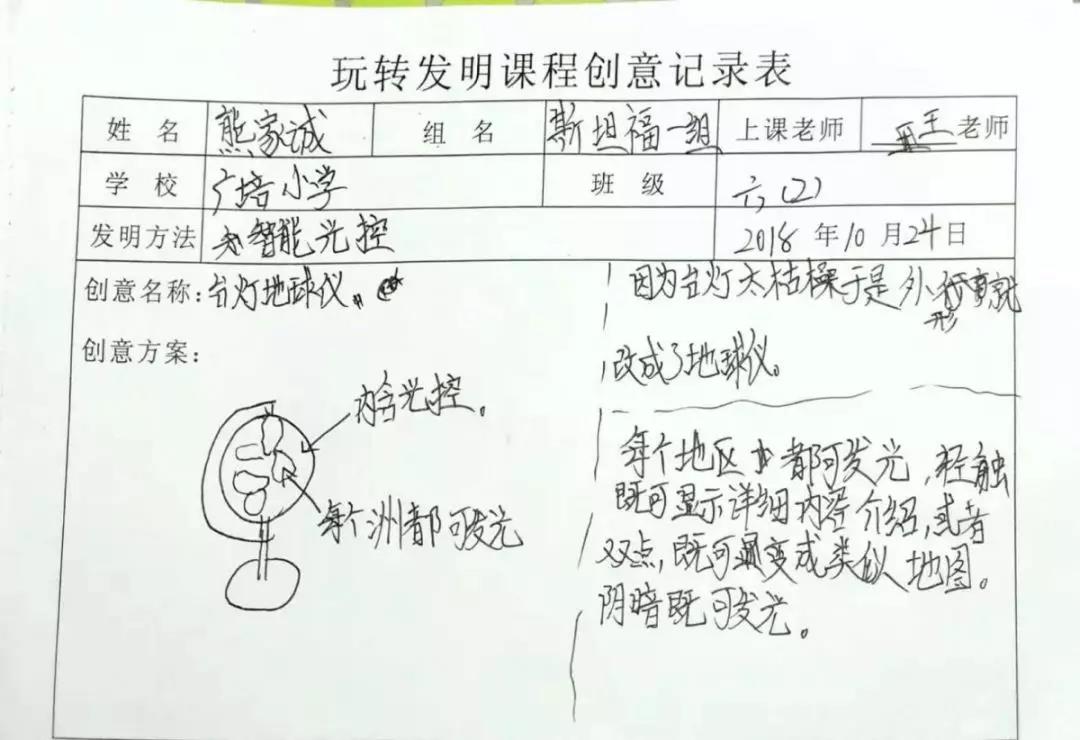 玩转发明课程创意记录表
姓名 熊家诚 组名 斯坦福一组 上课老师 王老师
学校 广培小学 班级 六(2)
发明方法 智能光控 2018年10月24日
创意名称:台灯地球仪。
创意方案:
内含光控。
每个洲都可发光
因为台灯太枯橾于是外形就
改成了地球仪。
每个地区都可发光,轻触
既可显示详细内容介绍,或者
双点,既可变成类似地图。
阴暗既可发光。